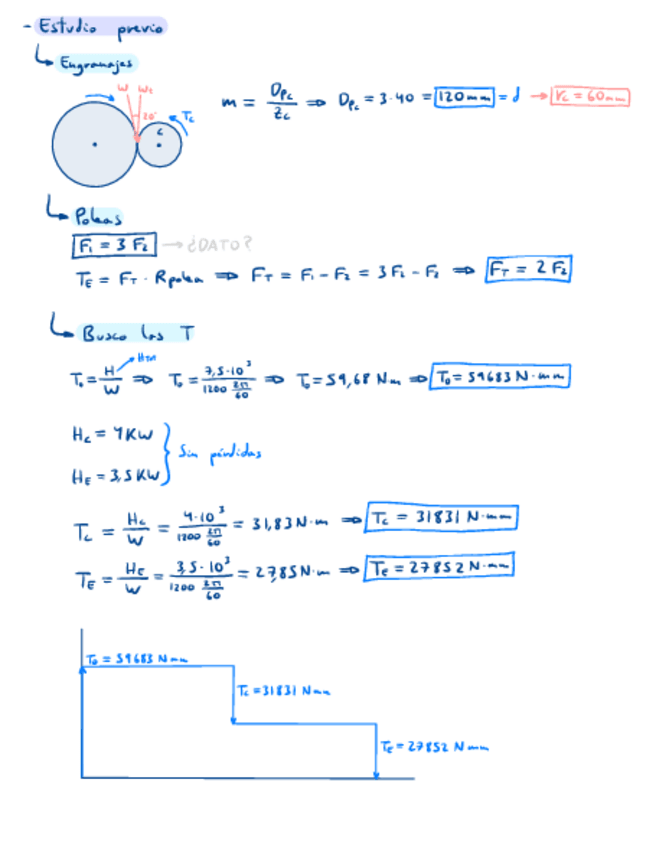 - Estudio previo
Engranajes
W Wc
20°
Tc
c
m = Dpc / zc ⇒ Dpc = 3·40 = 120 mm = d → rc = 60 mm
Poleas
F1 = 3 F2 → ¿DATO?
TE = FT · Rpolea ⇒ FT = F1 - F2 = 3F2 - F2 ⇒ FT = 2 F2
Busco las T
To = H / W ⇒ To = 7,5·10³ / 1200 2π/60 ⇒ To = 59,68 Nm ⇒ To = 59683 N·mm
Hc = 4 KW
Sin pérdidas
HE = 3,5 KW
Tc = Hc / W = 4·10³ / 1200 2π/60 = 31,83 N·m ⇒ Tc = 31831 N·mm
TE = HE / W = 3,5·10³ / 1200 2π/60 = 27,85 N·m ⇒ TE = 27852 N·mm
To = 59683 N mm
Tc = 31831 N mm
TE = 27852 N mm